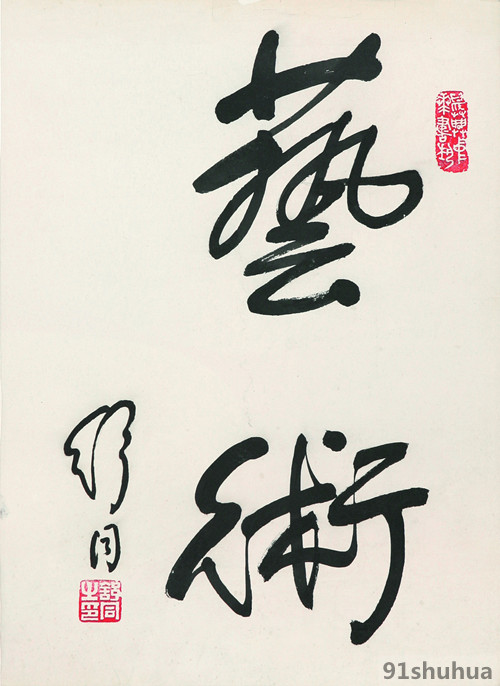 藝術
舒同
舒同之印
91shuhua